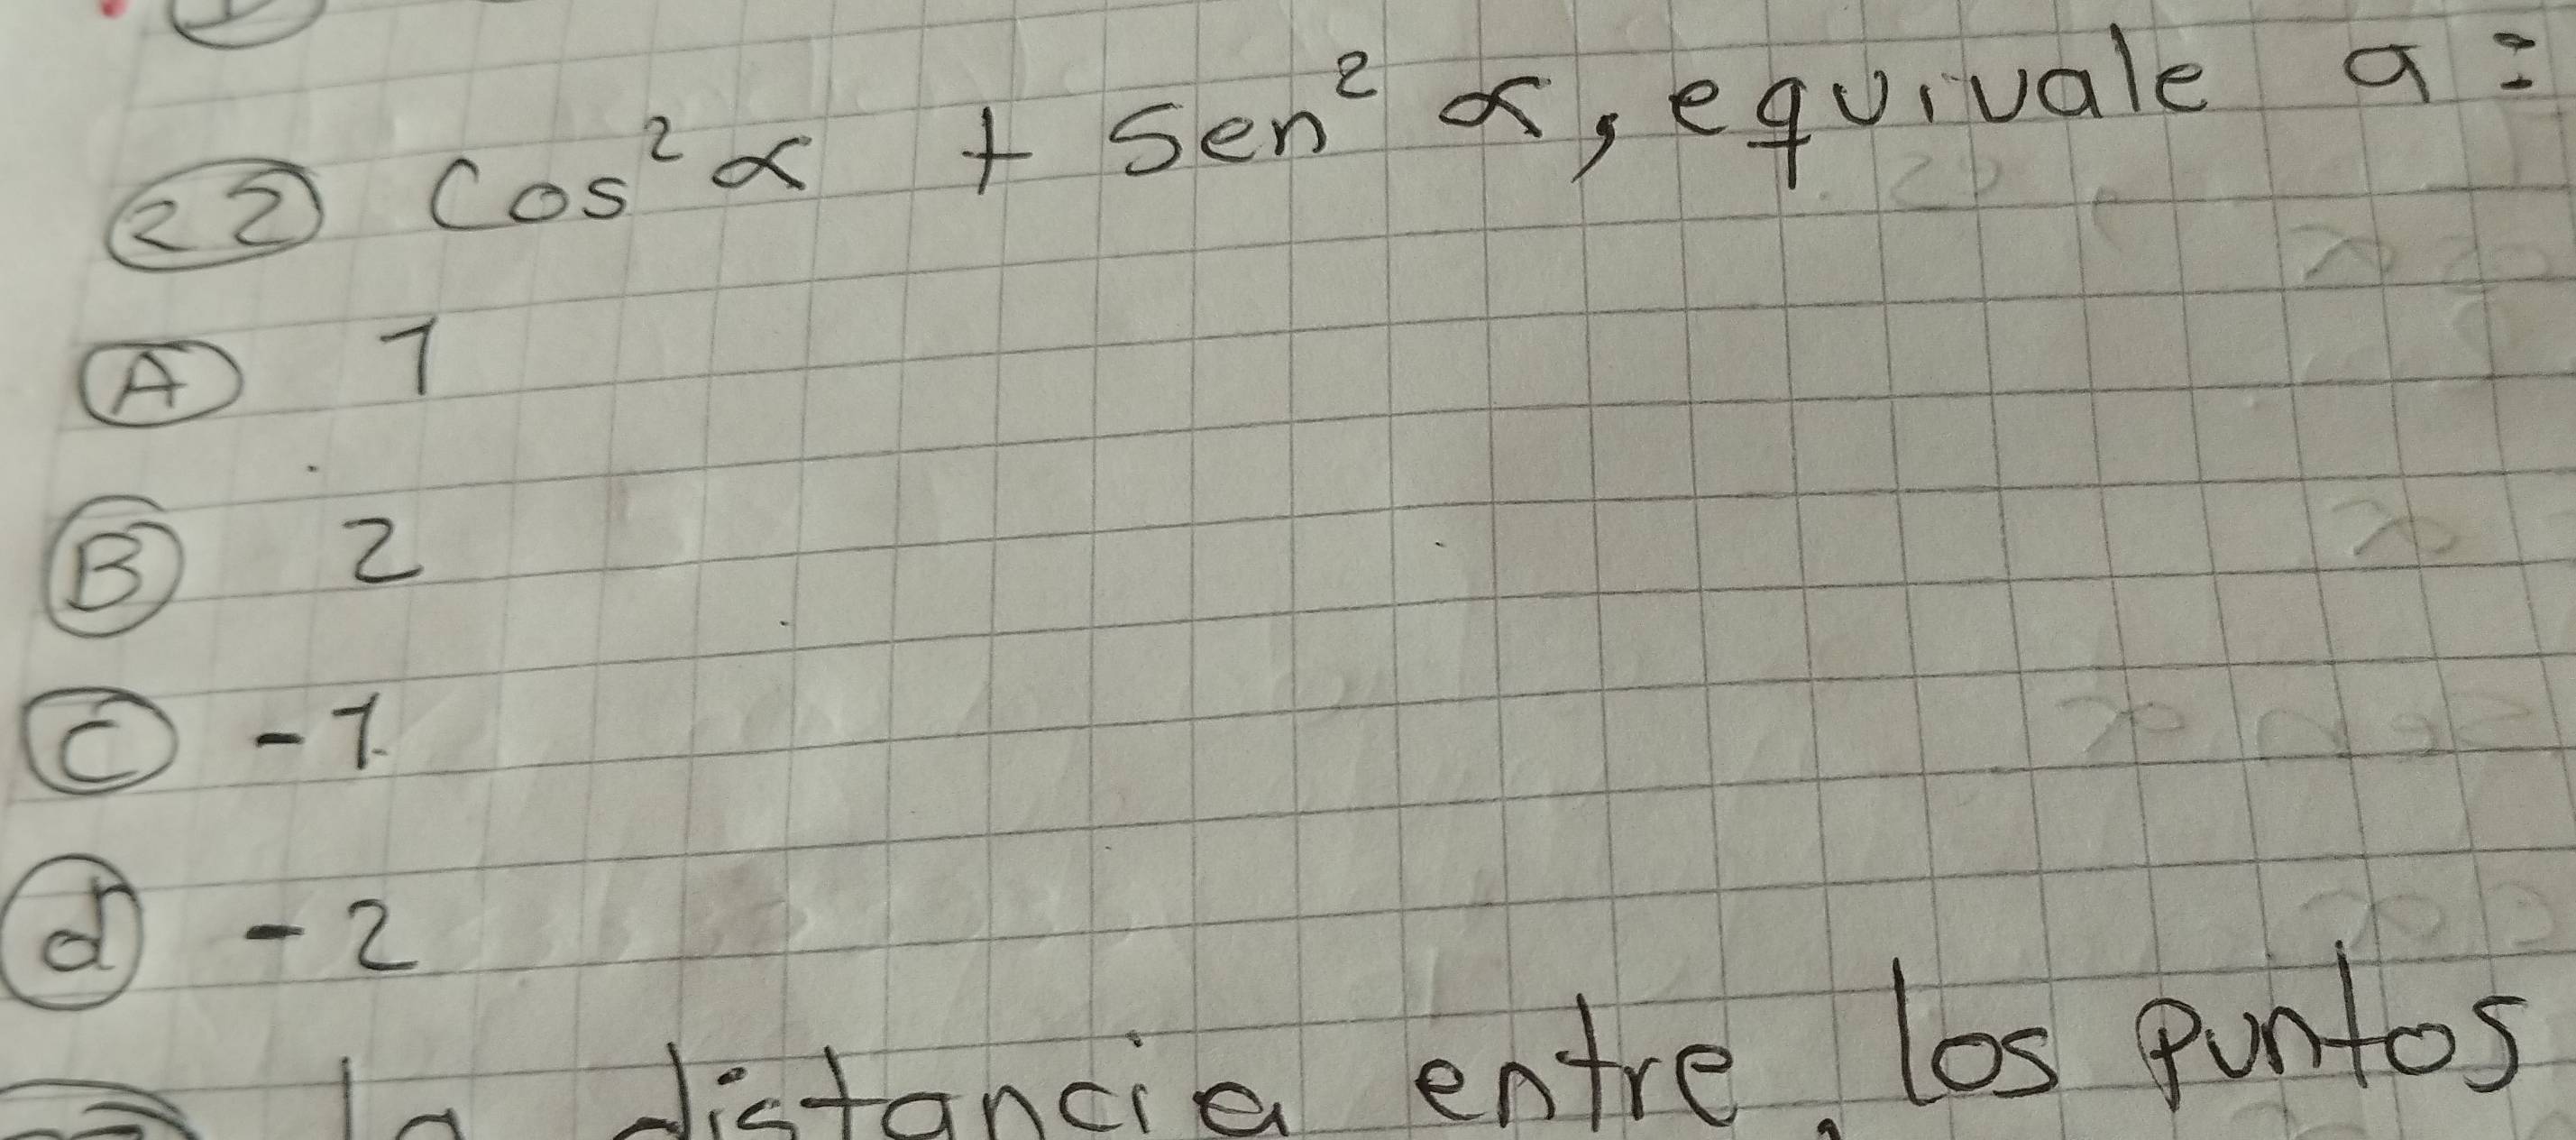 22 Cos² α + Sen² α, equivale a:
A 1
B 2
C -1
d -2
la distancia entre los puntos